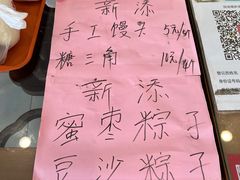 新添
手工馒头 5元/4个
糖三角 10元/4个
新添
蜜枣粽子
豆沙粽子